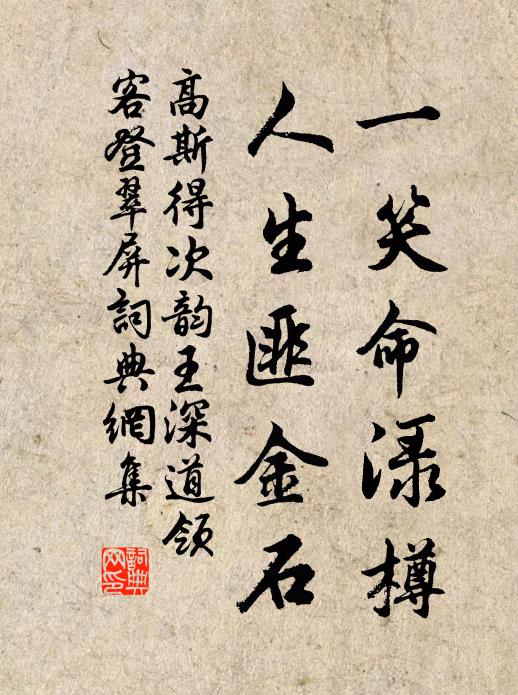 一笑命渌樽
人生匪金石
高斯得次韵王深道领
客登翠屏詞典網集
詞典
网印